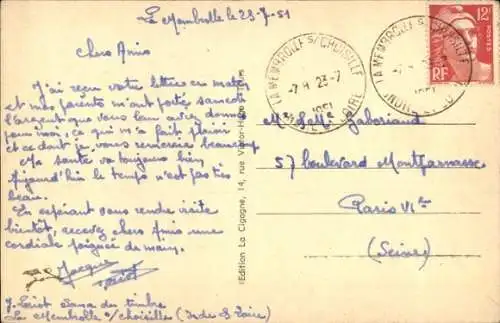 La Membrolle le 23-7-51
Chers Amis
J'ai reçu votre lettre ce matin
et mes parents m'ont porté samedi
l'argent que vous leur avez donné
pour moi, ce qui m'a fait plaisir
et ce dont je vous remercie beaucoup
Ma santé va toujours bien
Aujourd'hui le temps n'est pas très
beau.
En espérant vous rendre visite
bientôt, recevez chers Amis une
cordiale poignée de main.
Jacques
J. Loriot Sana du timbre
La Membrolle s/Choisille (Indre & Loire)
Edition La Cigogne, 14, rue Victor-Hugo
LA MEMBROLLE S/ CHOISILLE
-7 H 23-7
1951
INDRE ET LOIRE
LA MEMBROLLE S/ CHOISILLE
1951
INDRE ET LOIRE
12F
POSTES
RF
M. & Me Gaboriaud
57 boulevard Montparnasse
Paris VIème
(Seine)